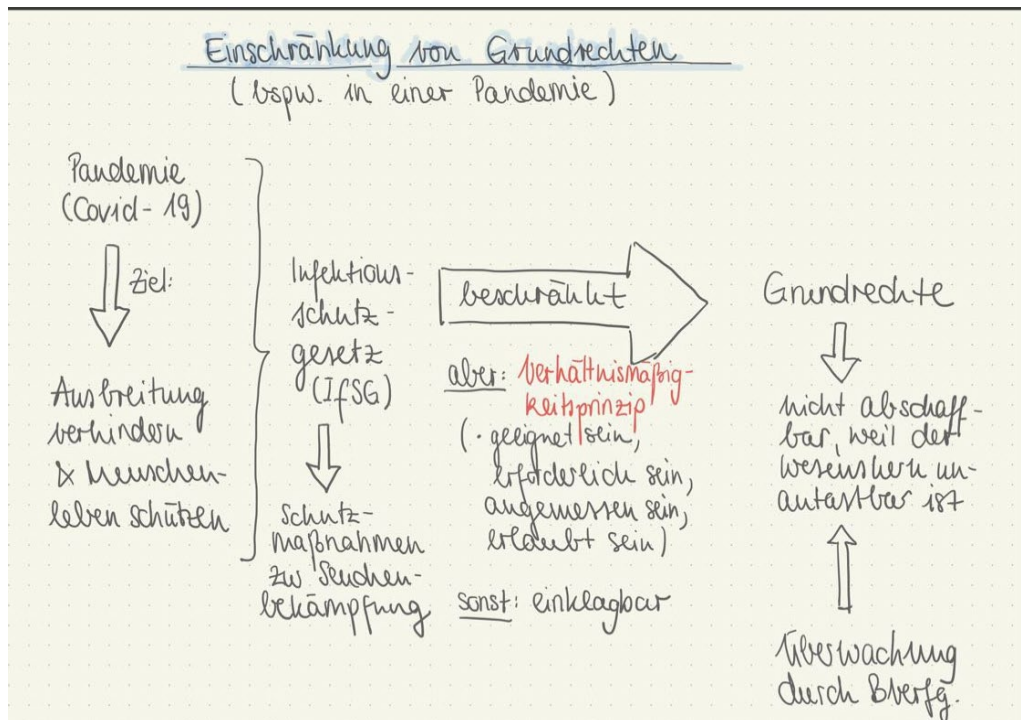 Einschränkung von Grundrechten
(bspw. in einer Pandemie)
Pandemie
(Covid-19)
Ziel:
Ausbreitung
verhindern
& Menschen-
leben schützen
Infektions-
schutz-
gesetz
(IfSG)
Schutz-
maßnahmen
zur Seuchen-
bekämpfung
beschränkt
aber: Verhältnismäßig-
keitsprinzip
(· geeignet sein,
erforderlich sein,
angemessen sein,
erlaubt sein)
sonst: einklagbar
Grundrechte
nicht abschaff-
bar, weil der
Wesenskern un-
antastbar ist
Überwachung
durch BVerfG.